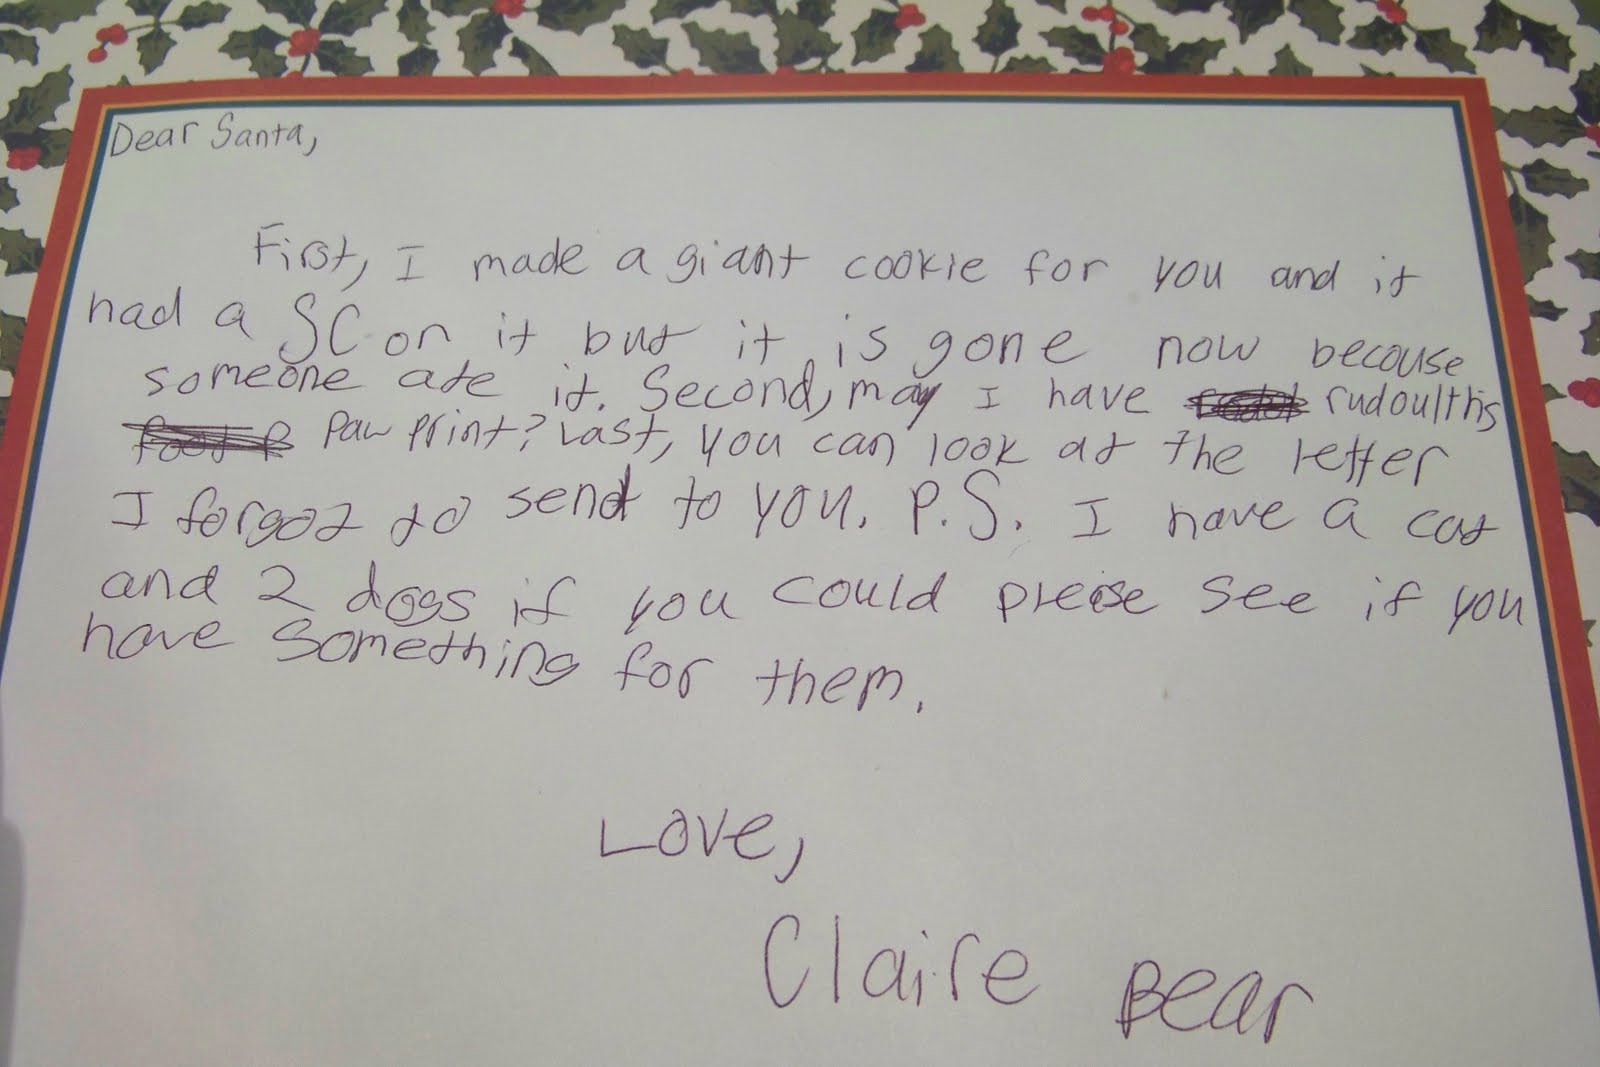 Dear Santa,
First, I made a giant cookie for you and it
had a SC on it but it is gone now because
someone ate it. Second, may I have rudoulths
paw print? Last, you can look at the letter
I forgot to send to you. P.S. I have a cat
and 2 dogs if you could please see if you
have something for them.
Love,
Claire Bear